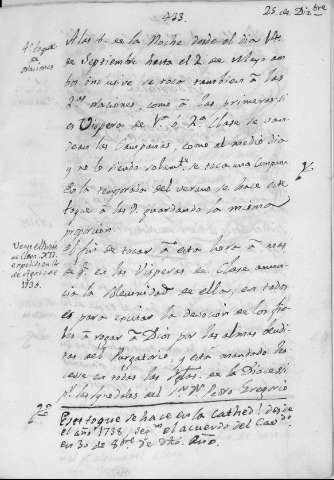 433.
25. de Diz.bre
4.º toque de oraciones
A las 8. de la Noche desde el dia 14.
de Septiembre hasta el 2. de Mayo am
bos inclusive se toca tambien à las
2.as oraciones, como à las primeras: si
es Visperas de 1.ª ò 2.ª Clase se tañen
las Campanas, como al medio dia
y no lo siendo solam.te se toca una Campana
En la temporada del verano se hace este
toque à las 9. guardando la misma
proporcion.
Vease el Breve de Clem. XII. expedido en 14. de Agosto de 1736.
El fin de tocar à esta hora à mas
de q.e en las Visperas de Clase anun
cia la Solemnidad de ella, en todos
es para excitar la devocion de los fie
les à rogar à Dios por las almas
del Purgatorio, y està mandado
en todas las Igl.as de la Diocesi
Pedro Gregorio
Este toque se hace en la Cathed.l desde
el año 1738, seg.n el acuerdo del Cav.do
en 30 de 8bre de dho. Año.